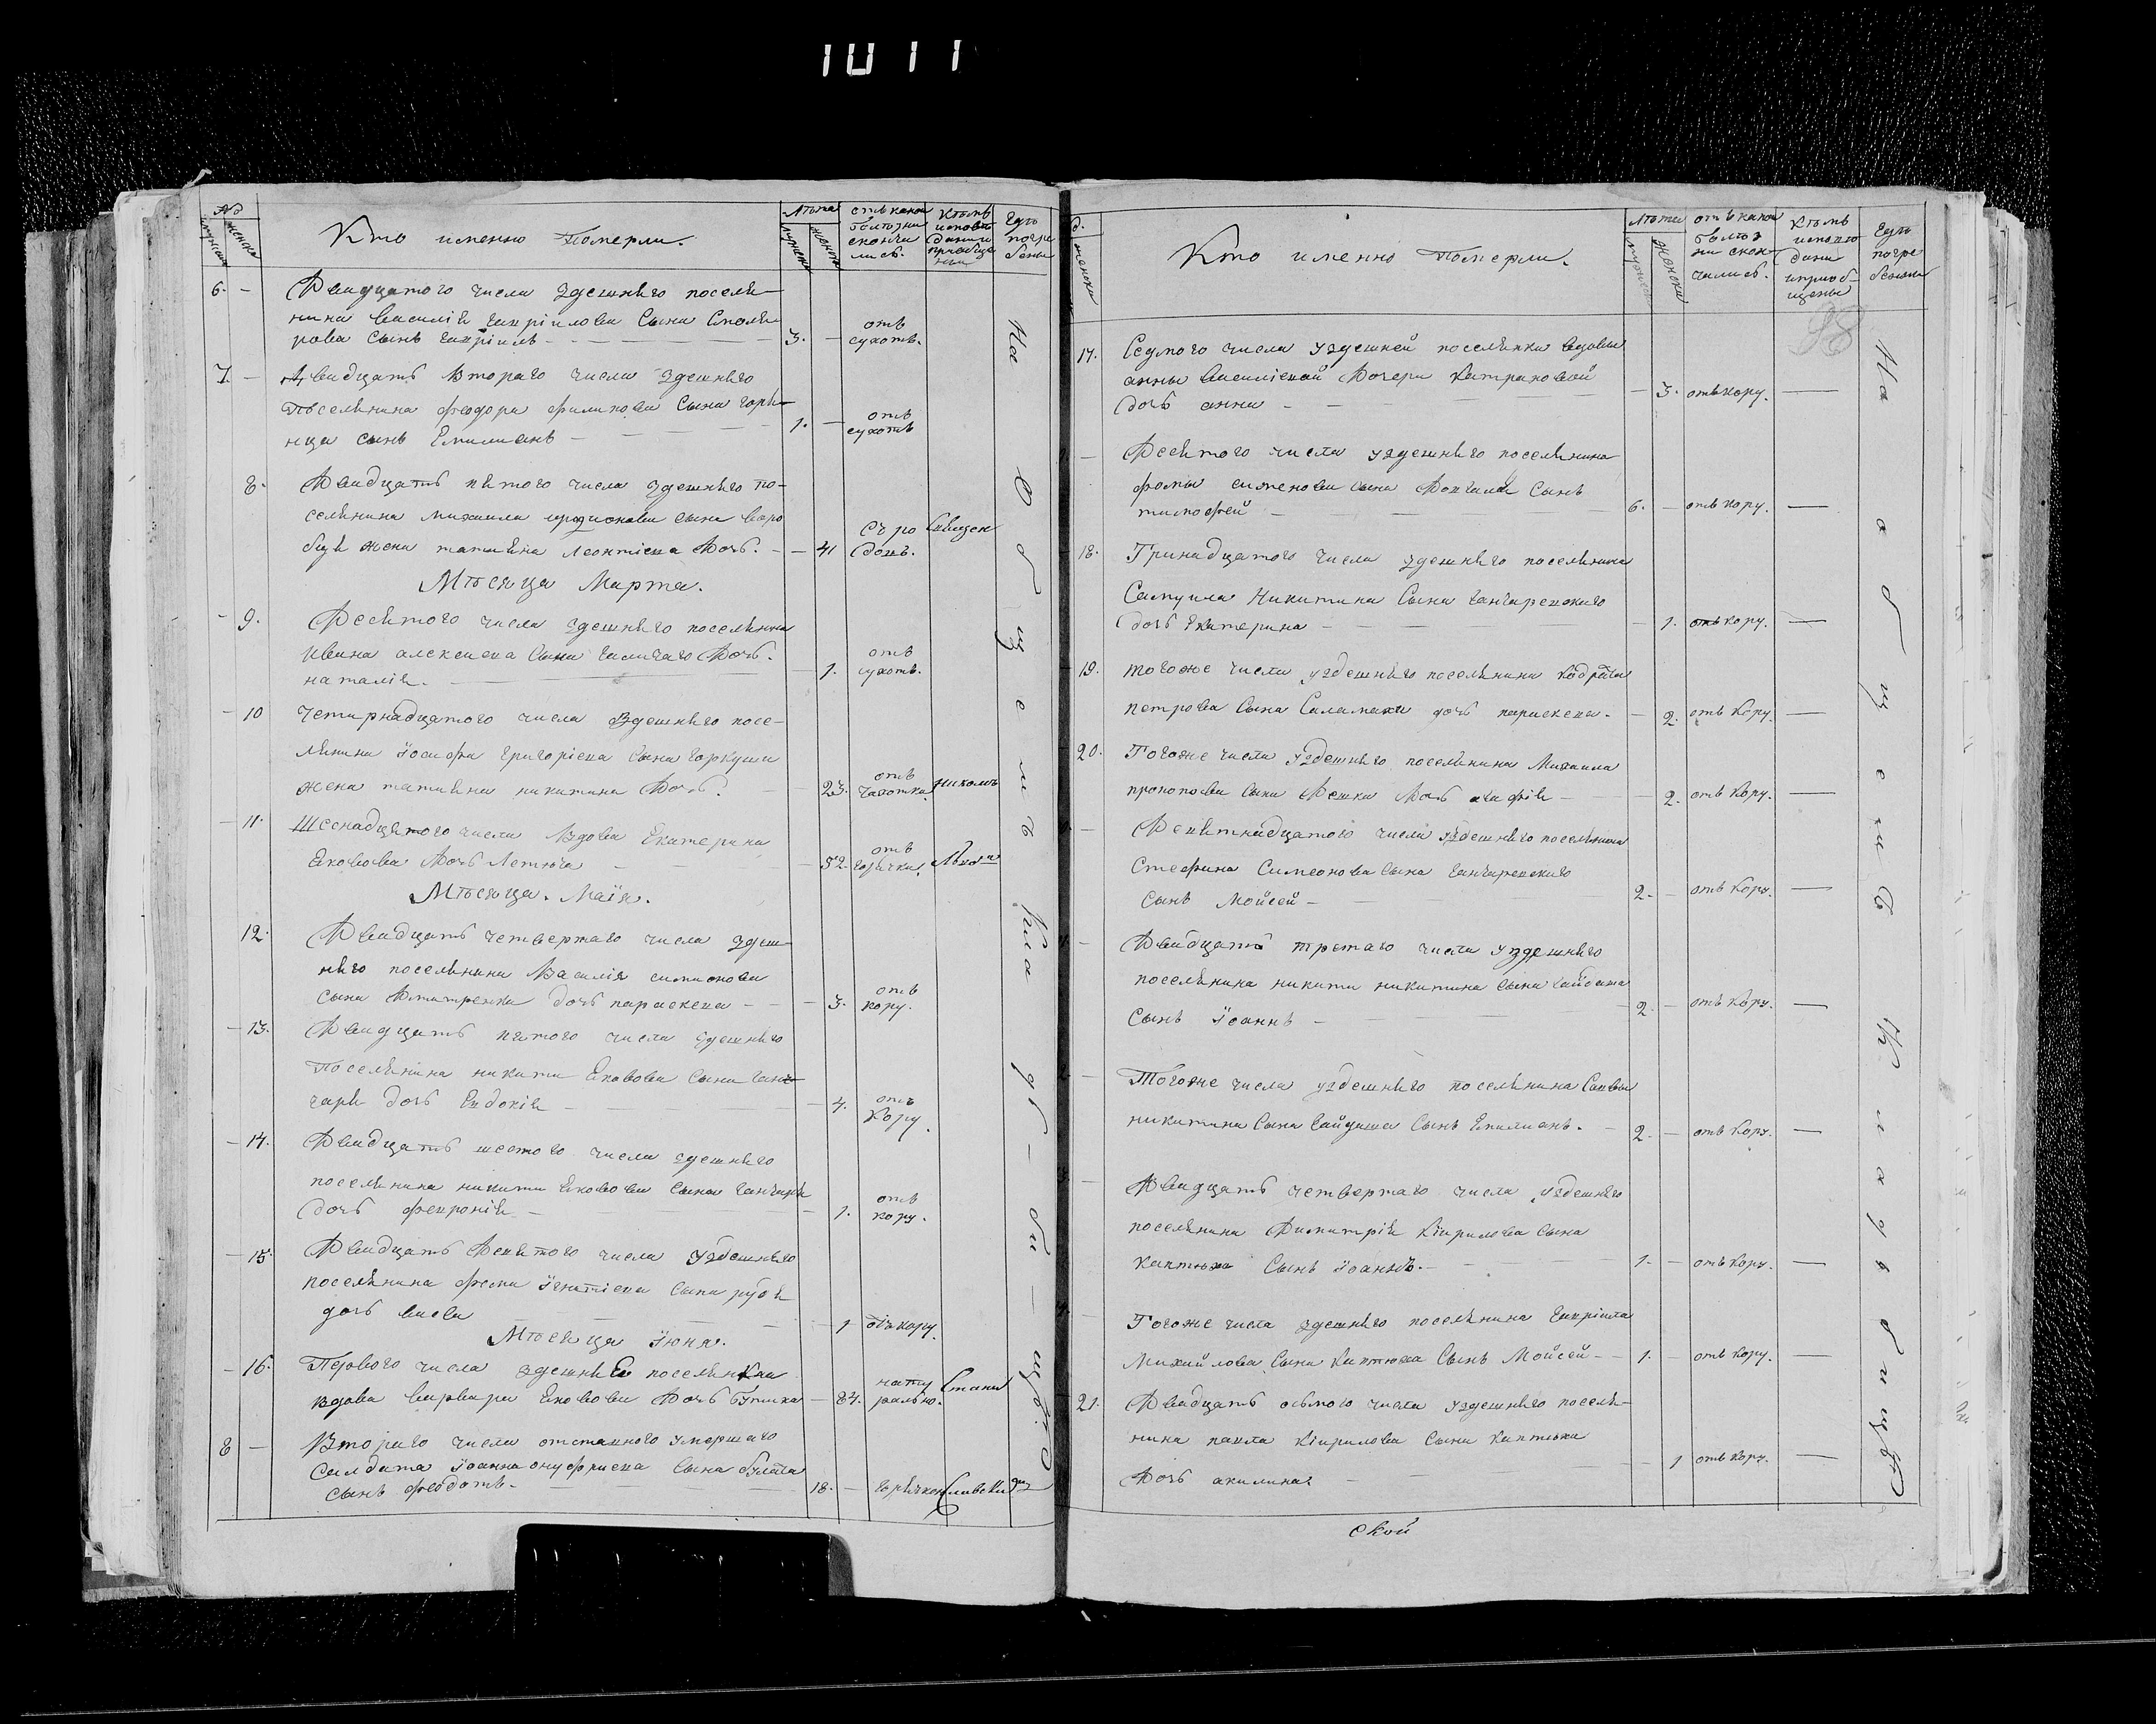 1011
№
мужска
женска
Кто именно Померли.
Лѣта
мужска
женска
отъ какой болѣзни скончались.
Кѣмъ исповѣданы и приобщены
Гдѣ погребены
6. —
Двадцатого числа здешняго поселя-
нина Василія Гавріилова Сына Столя-
рова Сынъ Гавріилъ — 3. — отъ сухотъ.
7. —
Двадцать Втораго числа здешняго
Поселянина Феодора Филипова Сына Горя-
нца сынъ Емилианъ — 1. — отъ сухотъ
8.
Двадцать пятого числа здешняго по-
селянина Михаила иродионова сына Воро
бця жена татияна Леонтіева Дочь. — 41 Съ родовъ. Священ
Мѣсяца Марта.
— 9.
Десятого числа здешняго поселянина
Ивана алексиева Сына Дочь.
наталія. — 1. отъ сухотъ.
— 10
Четирнадцатого числа Здешняго посе-
лянина Іосифа Григоріева Сына Горкуши
жена татияна никитина Дочь. — 23. отъ чахотки. Николъ
— 11.
Шеснадцятого числа Вдова Екатерина
Яковова Дочь Летюча — 52. отъ горячки.
Мѣсяца. Маія.
12.
Двадцать четвертаго числа здеш-
няго поселянина Василія симионова
сына Дмитренка дочь параскева — 3. отъ кору.
— 13.
Двадцать пятого числа здешняго
Поселянина никити Яковова Сына Ган-
чаря дочь Евдокія — 4. отъ Кору.
— 14.
Двадцать шестого числа здешняго
поселянина никити Яковова Сына Ганчаря
дочь февронія — 1. отъ кору.
— 15
Двадцать Девятого числа уздешняго
поселянина Фомы Ігнатіева Сына
дочь васса — 1 отъ кору.
Мѣсяца Іюня.
— 16.
Первого числа здешняЕ поселянКна
вдова Варвара Яковова Дочь — 84. натурально. Стани
8 —
Втораго числа отставного умершаго
Салдата Іоанна онуфриева Сына Булата
сынъ Феодотъ. — 18. — горячкою
На общемъ кладбищѣ
д.
женска
Кто именно Померли.
Лѣта
мужска
женска
отъ какой болѣзни скончались.
Кѣмъ исповѣданы и приобщены
Гдѣ погребены
98
17.
Седмого числа уздешней поселянки вдовы
анны Василіевой Дочери Катрановой
дочь анна — 3. отъ кору. —
—
Десятого числа уздешняго поселянина
фомы симеонова сына Сынъ
тимофей — 6. — отъ кору. —
18.
Тринадцатого числа здешняго поселянина
Самуила Никитина Сына Ганчаревского
дочь Екатерина — 1. отъ кору. —
19.
тогоже числа уздешняго поселянина Кодрата
петрова Сына Саламахи дочь параскева. — 2. отъ Кору. —
20.
Тогоже числа уздешняго поселянина Михаила
прокопова Сына Дешки Дочь агафія — 2. отъ Кору. —
—
Девятнадцатого числа уздешняго поселянина
Стефана Симеонова Сына Ганчаревского
Сынъ Мойсей — 2. — отъ Кору. —
—
Двадцать третаго числа уздешняго
поселянина никити никитина Сына Гайдаша
Сынъ Іоаннъ — 2. — отъ Кору. —
—
Тогоже числа уздешняго поселянина Саввы
никитина Сына Гайдаша Сынъ Емилианъ. — 2. — отъ Кору. —
—
Двадцать четвертаго числа уздешняго
поселянина Димитрія Кіирилова Сына
Каптюха Сынъ Іоаннъ. — 1. — отъ Кору. —
—
Тогоже числа здешняго поселянина Гавріила
Михайлова Сына Каптюха Сынъ Мойсей — 1. — отъ Кору. —
21.
Двадцать осьмого числа уздешняго поселя-
нина павла Кіирилова Сына Каптюха
Дочь акилина. — 1 отъ Кору. —
На общемъ Кладбищѣ
ской